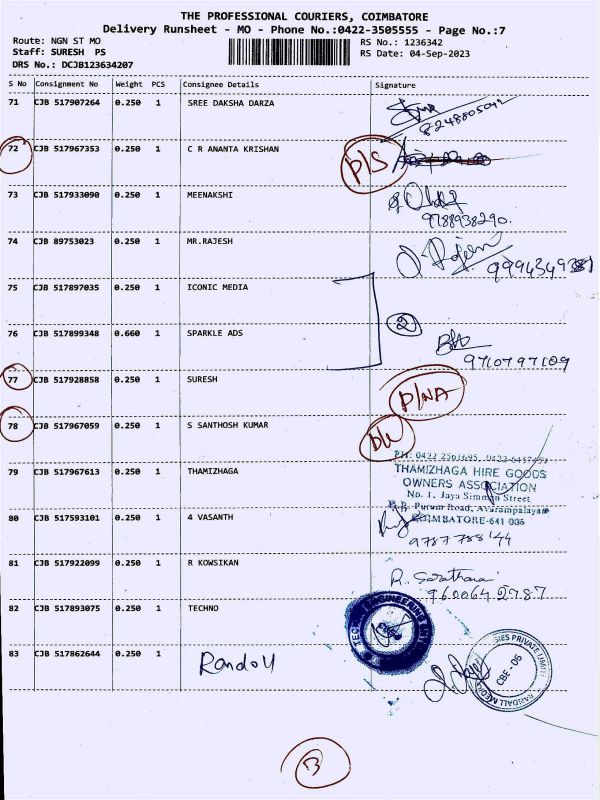 THE PROFESSIONAL COURIERS, COIMBATORE
Delivery Runsheet - MO - Phone No.:0422-3505555 - Page No.:7
Route: NGN ST MO
RS No.: 1236342
Staff: SURESH PS
RS Date: 04-Sep-2023
DRS No.: DCJB123634207
S No Consignment No Weight PCS Consignee Details Signature
71 CJB 517907264 0.250 1 SREE DAKSHA DARZA
8248805092
72 CJB 517967353 0.250 1 C R ANANTA KRISHAN P/S
73 CJB 517933090 0.250 1 MEENAKSHI
9788938290.
74 CJB 89753023 0.250 1 MR.RAJESH
75 CJB 517897035 0.250 1 ICONIC MEDIA
2
76 CJB 517899348 0.660 1 SPARKLE ADS
9710797109
77 CJB 517928858 0.250 1 SURESH P/NA
78 CJB 517967059 0.250 1 S SANTHOSH KUMAR D/L
PH: 0422 2561695,
79 CJB 517967613 0.250 1 THAMIZHAGA THAMIZHAGA HIRE GOODS
OWNERS ASSOCIATION
No. 1, Jaya Simman Street
Puram Road, Avarampalayam
80 CJB 517593101 0.250 1 4 VASANTH COIMBATORE-641 006
9787788144
81 CJB 517922099 0.250 1 R KOWSIKAN
9600642987
82 CJB 517893075 0.250 1 TECHNO
83 CJB 517862644 0.250 1 Randall
CBE - 06
13